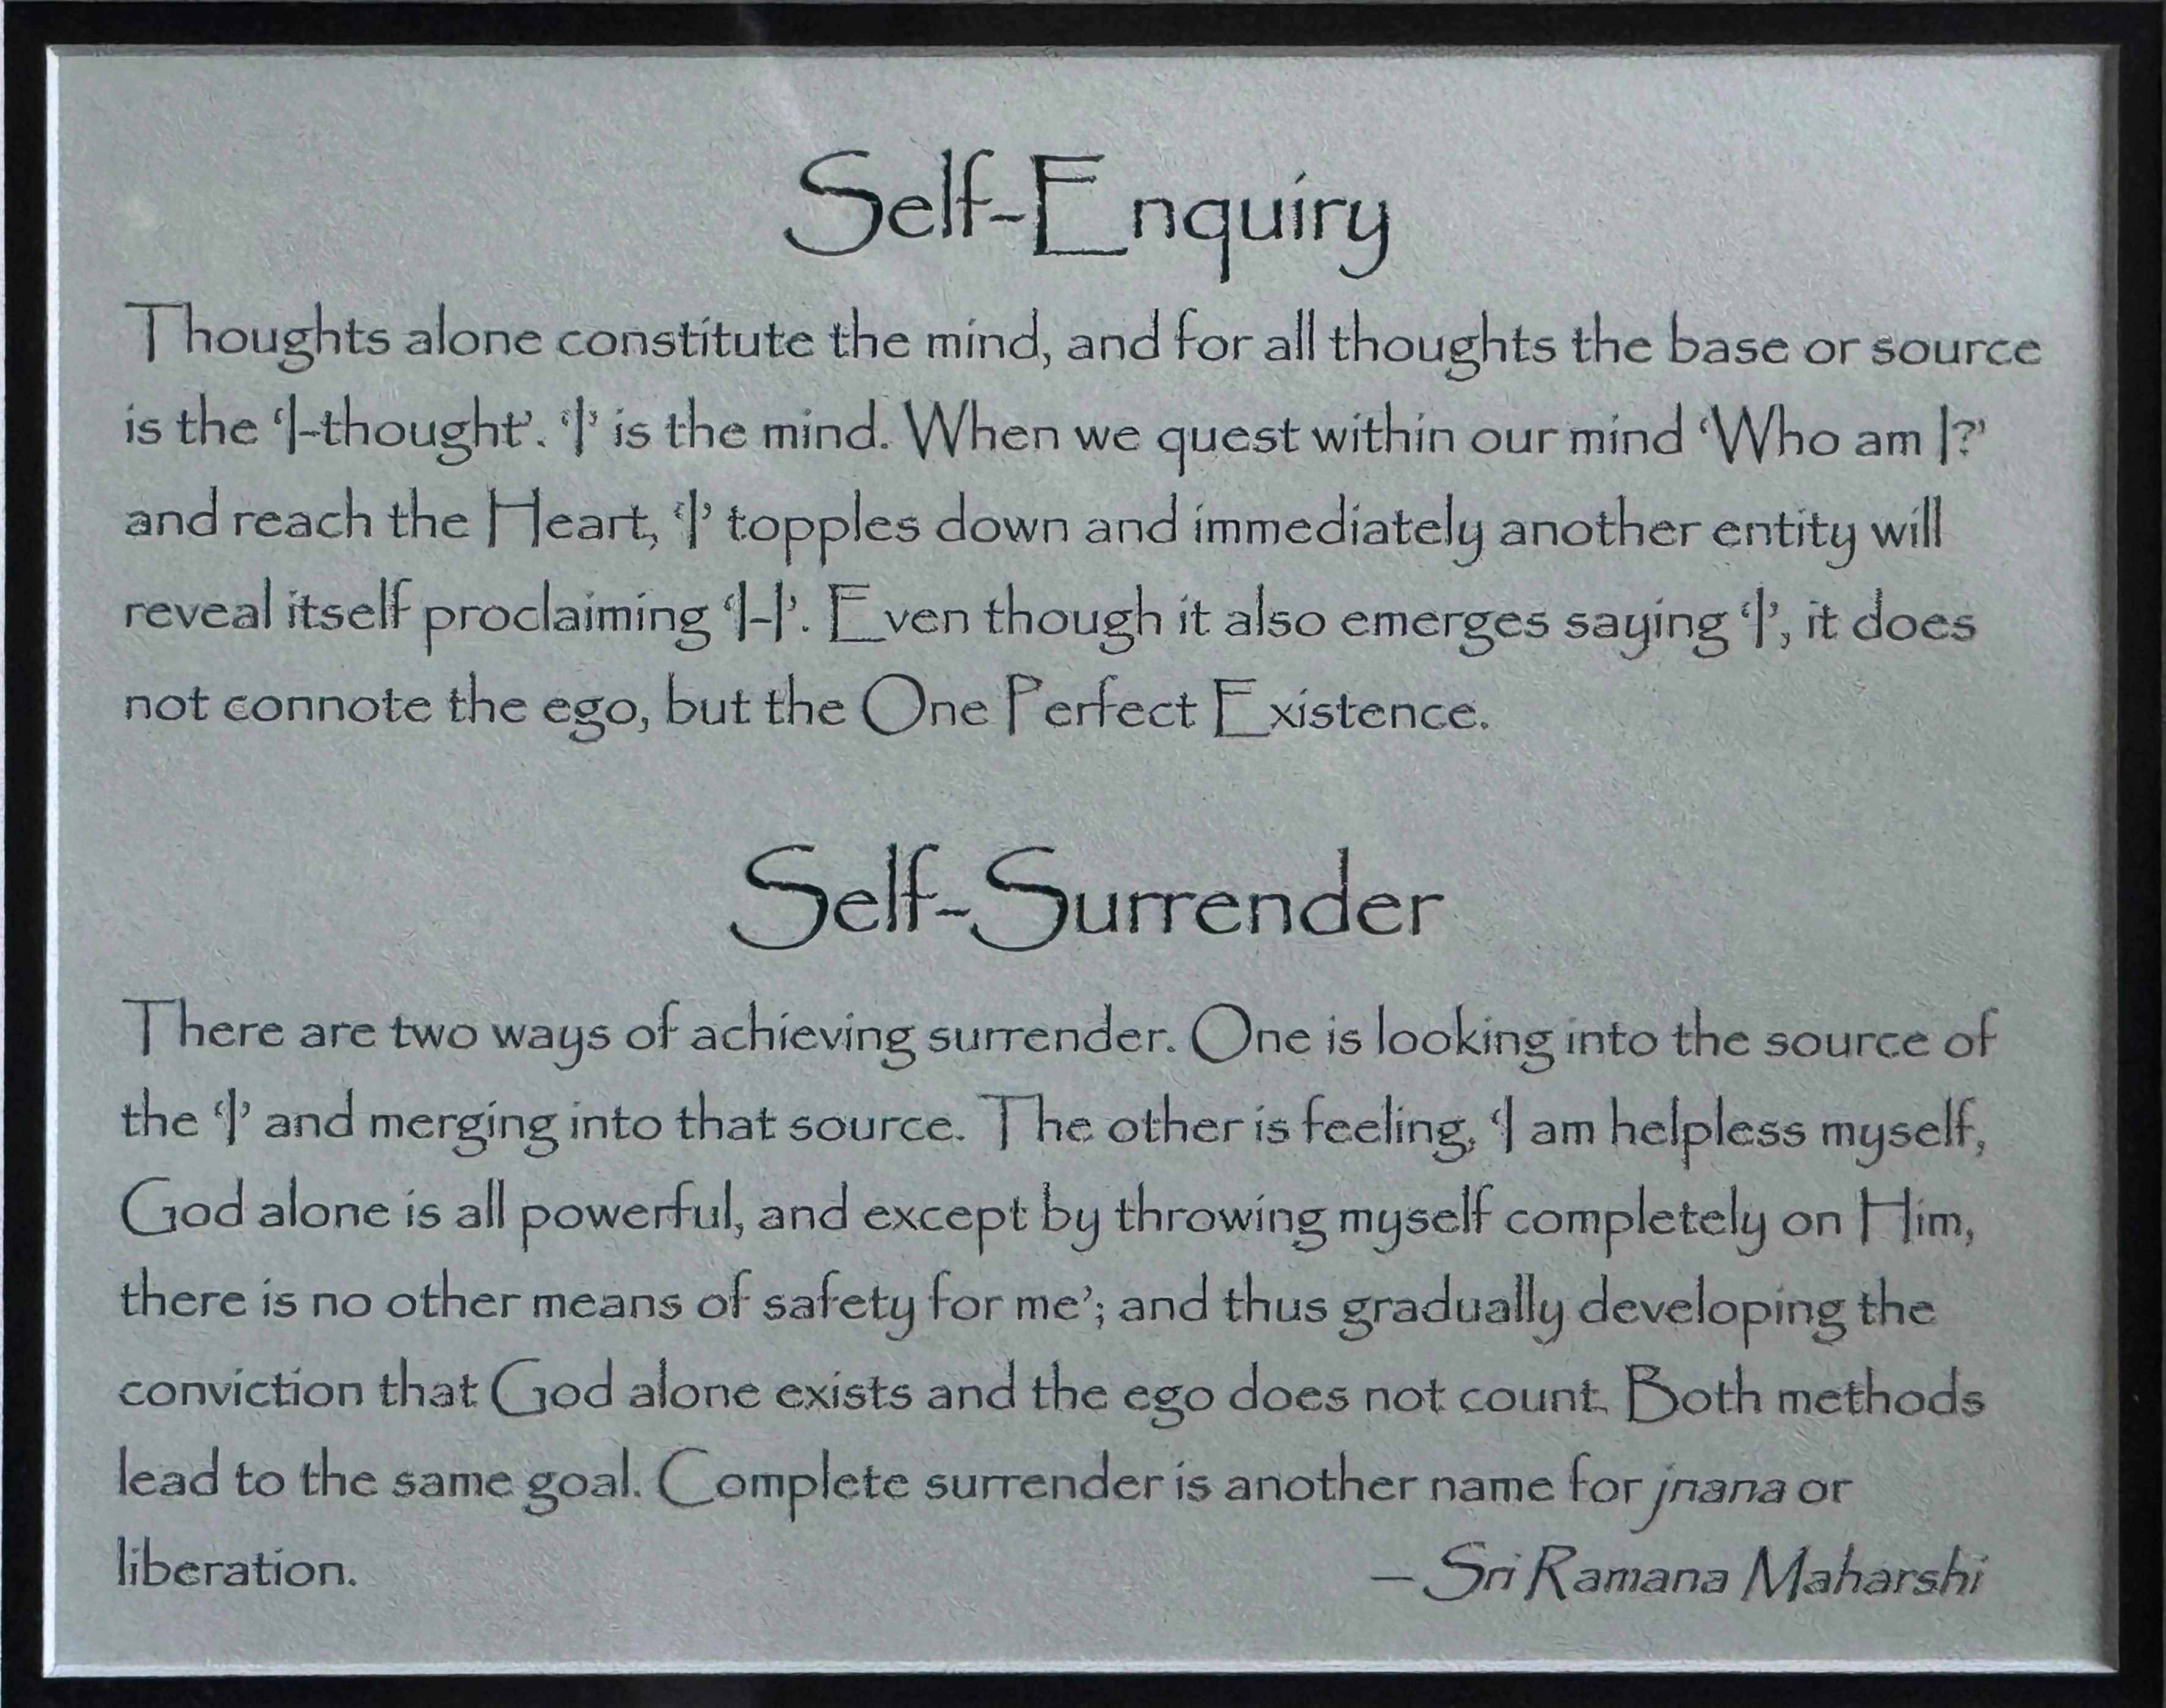 Self-Enquiry
Thoughts alone constitute the mind, and for all thoughts the base or source
is the ‘I-thought’. ‘I’ is the mind. When we quest within our mind ‘Who am I?’
and reach the Heart, ‘I’ topples down and immediately another entity will
reveal itself proclaiming ‘I-I’. Even though it also emerges saying ‘I’, it does
not connote the ego, but the One Perfect Existence.
Self-Surrender
There are two ways of achieving surrender. One is looking into the source of
the ‘I’ and merging into that source. The other is feeling, ‘I am helpless myself,
God alone is all powerful, and except by throwing myself completely on Him,
there is no other means of safety for me’; and thus gradually developing the
conviction that God alone exists and the ego does not count. Both methods
lead to the same goal. Complete surrender is another name for jnana or
liberation. — Sri Ramana Maharshi